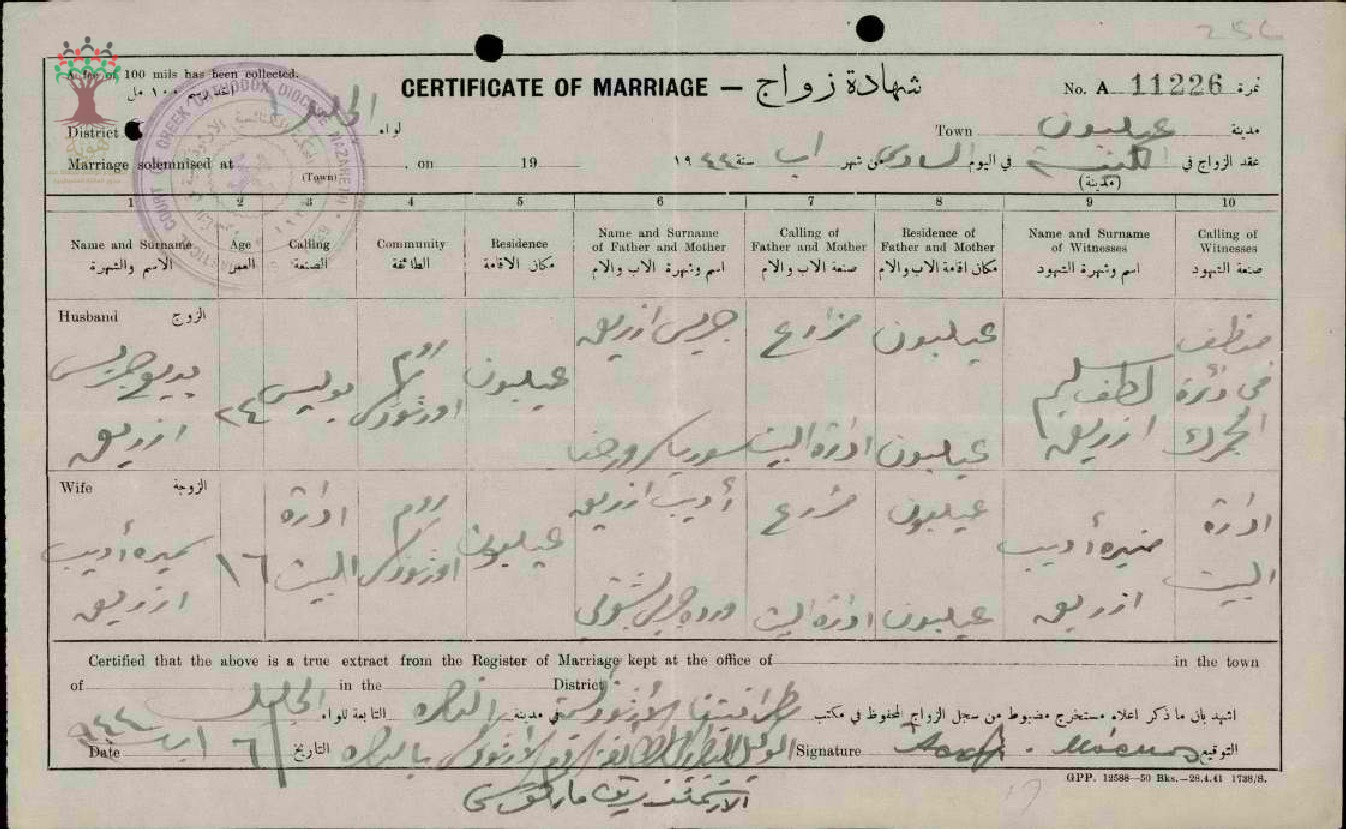 256
A fee of 100 mils has been collected.
CERTIFICATE OF MARRIAGE — شهادة زواج
No. A 11226 نمرة
District لواء الجليل
Town عيلبون مدينة
Marriage solemnised at . on 19
(Town)
عقد الزواج في الكنيسة في اليوم السادس من شهر اب سنة ١٩٤٤
(مدينة)
GREEK ORTHODOX DIOCESE NAZARETH
1 2 3 4 5 6 7 8 9 10
Name and Surname Age Calling Community Residence Name and Surname of Father and Mother Calling of Father and Mother Residence of Father and Mother Name and Surname of Witnesses Calling of Witnesses
الاسم والشهرة العمر الصنعة الطائفة مكان الاقامة اسم وشهرة الاب والام صنعة الاب والام مكان اقامة الاب والام اسم وشهرة الشهود صنعة الشهود
Husband الزوج
بديع جريس ازريق
٢٤
بوليس
روم اورثوذكس
عيلبون
جريس ازريق
مزارع
ادارة البيت
عيلبون
عيلبون
لطف سليم ازريق
في دائرة الجمرك
Wife الزوجة
سميره أديب ازريق
١٦
ادارة البيت
روم اورثوذكس
عيلبون
أديب ازريق
مزارع
ادارة البيت
عيلبون
عيلبون
منيره أديب ازريق
ادارة البيت
Certified that the above is a true extract from the Register of Marriage kept at the office of in the town
of in the District
اشهد بان ما ذكر اعلاه مستخرج مضبوط من سجل الزواج المحفوظ في مكتب
في مدينة الناصره التابعة للواء الجليل
Date ٦ اب ١٩٤٤ التاريخ
Signature التوقيع
الارثوذكس بالناصره
GPP. 12588—50 Bks.—28.4.41 1738/S.